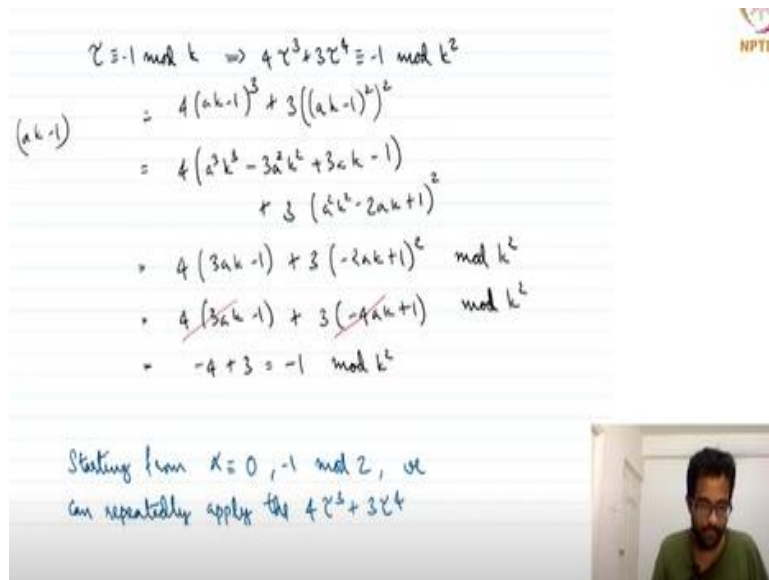 τ ≡ -1 mod k ⇒ 4τ³+3τ⁴ ≡ -1 mod k²
NPTE
(ak-1)
= 4(ak-1)³ + 3((ak-1)²)²
= 4(a³k³ - 3a²k² + 3ak - 1)
+ 3(a²k² - 2ak + 1)²
= 4(3ak-1) + 3(-2ak+1)² mod k²
= 4(3ak-1) + 3(-4ak+1) mod k²
= -4+3 = -1 mod k²
Starting from α ≡ 0, -1 mod 2, we
can repeatedly apply the 4τ³+3τ⁴